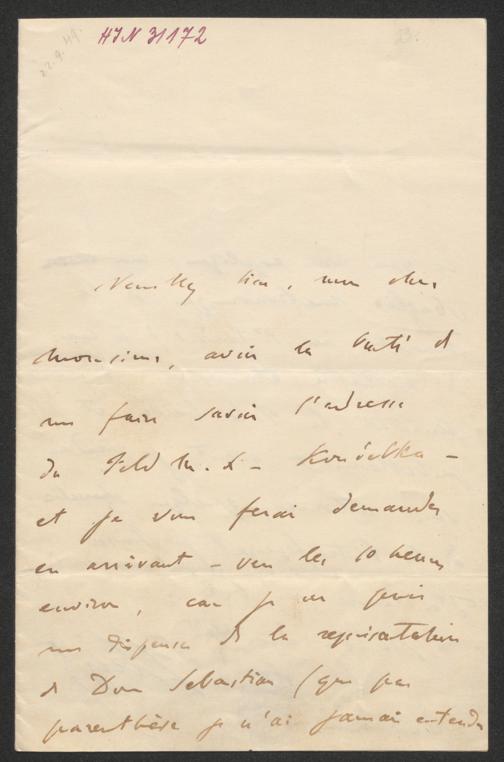 HIN 31172
22.9.49.
Veuillez bien, mon cher
Monsieur, avoir la bonté de
me faire savoir l'adresse
du Feld M. L. Koudelka –
et je vous ferai demander
en arrivant – vers les 10 heures
environ, car je ne puis
me dispenser de la représentation
de Don Sebastian (que par
parenthèse je n'ai jamais entendu